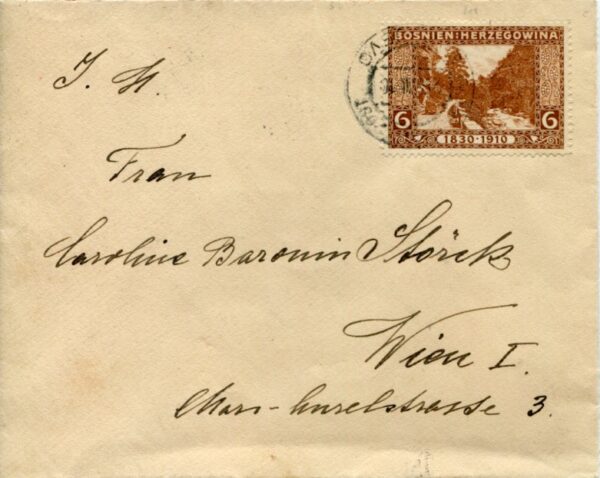 BOSNIEN-HERZEGOWINA
6 6
1830-1910
J. H.
Frau
Caroline Baronin Störck
Wien I.
3.